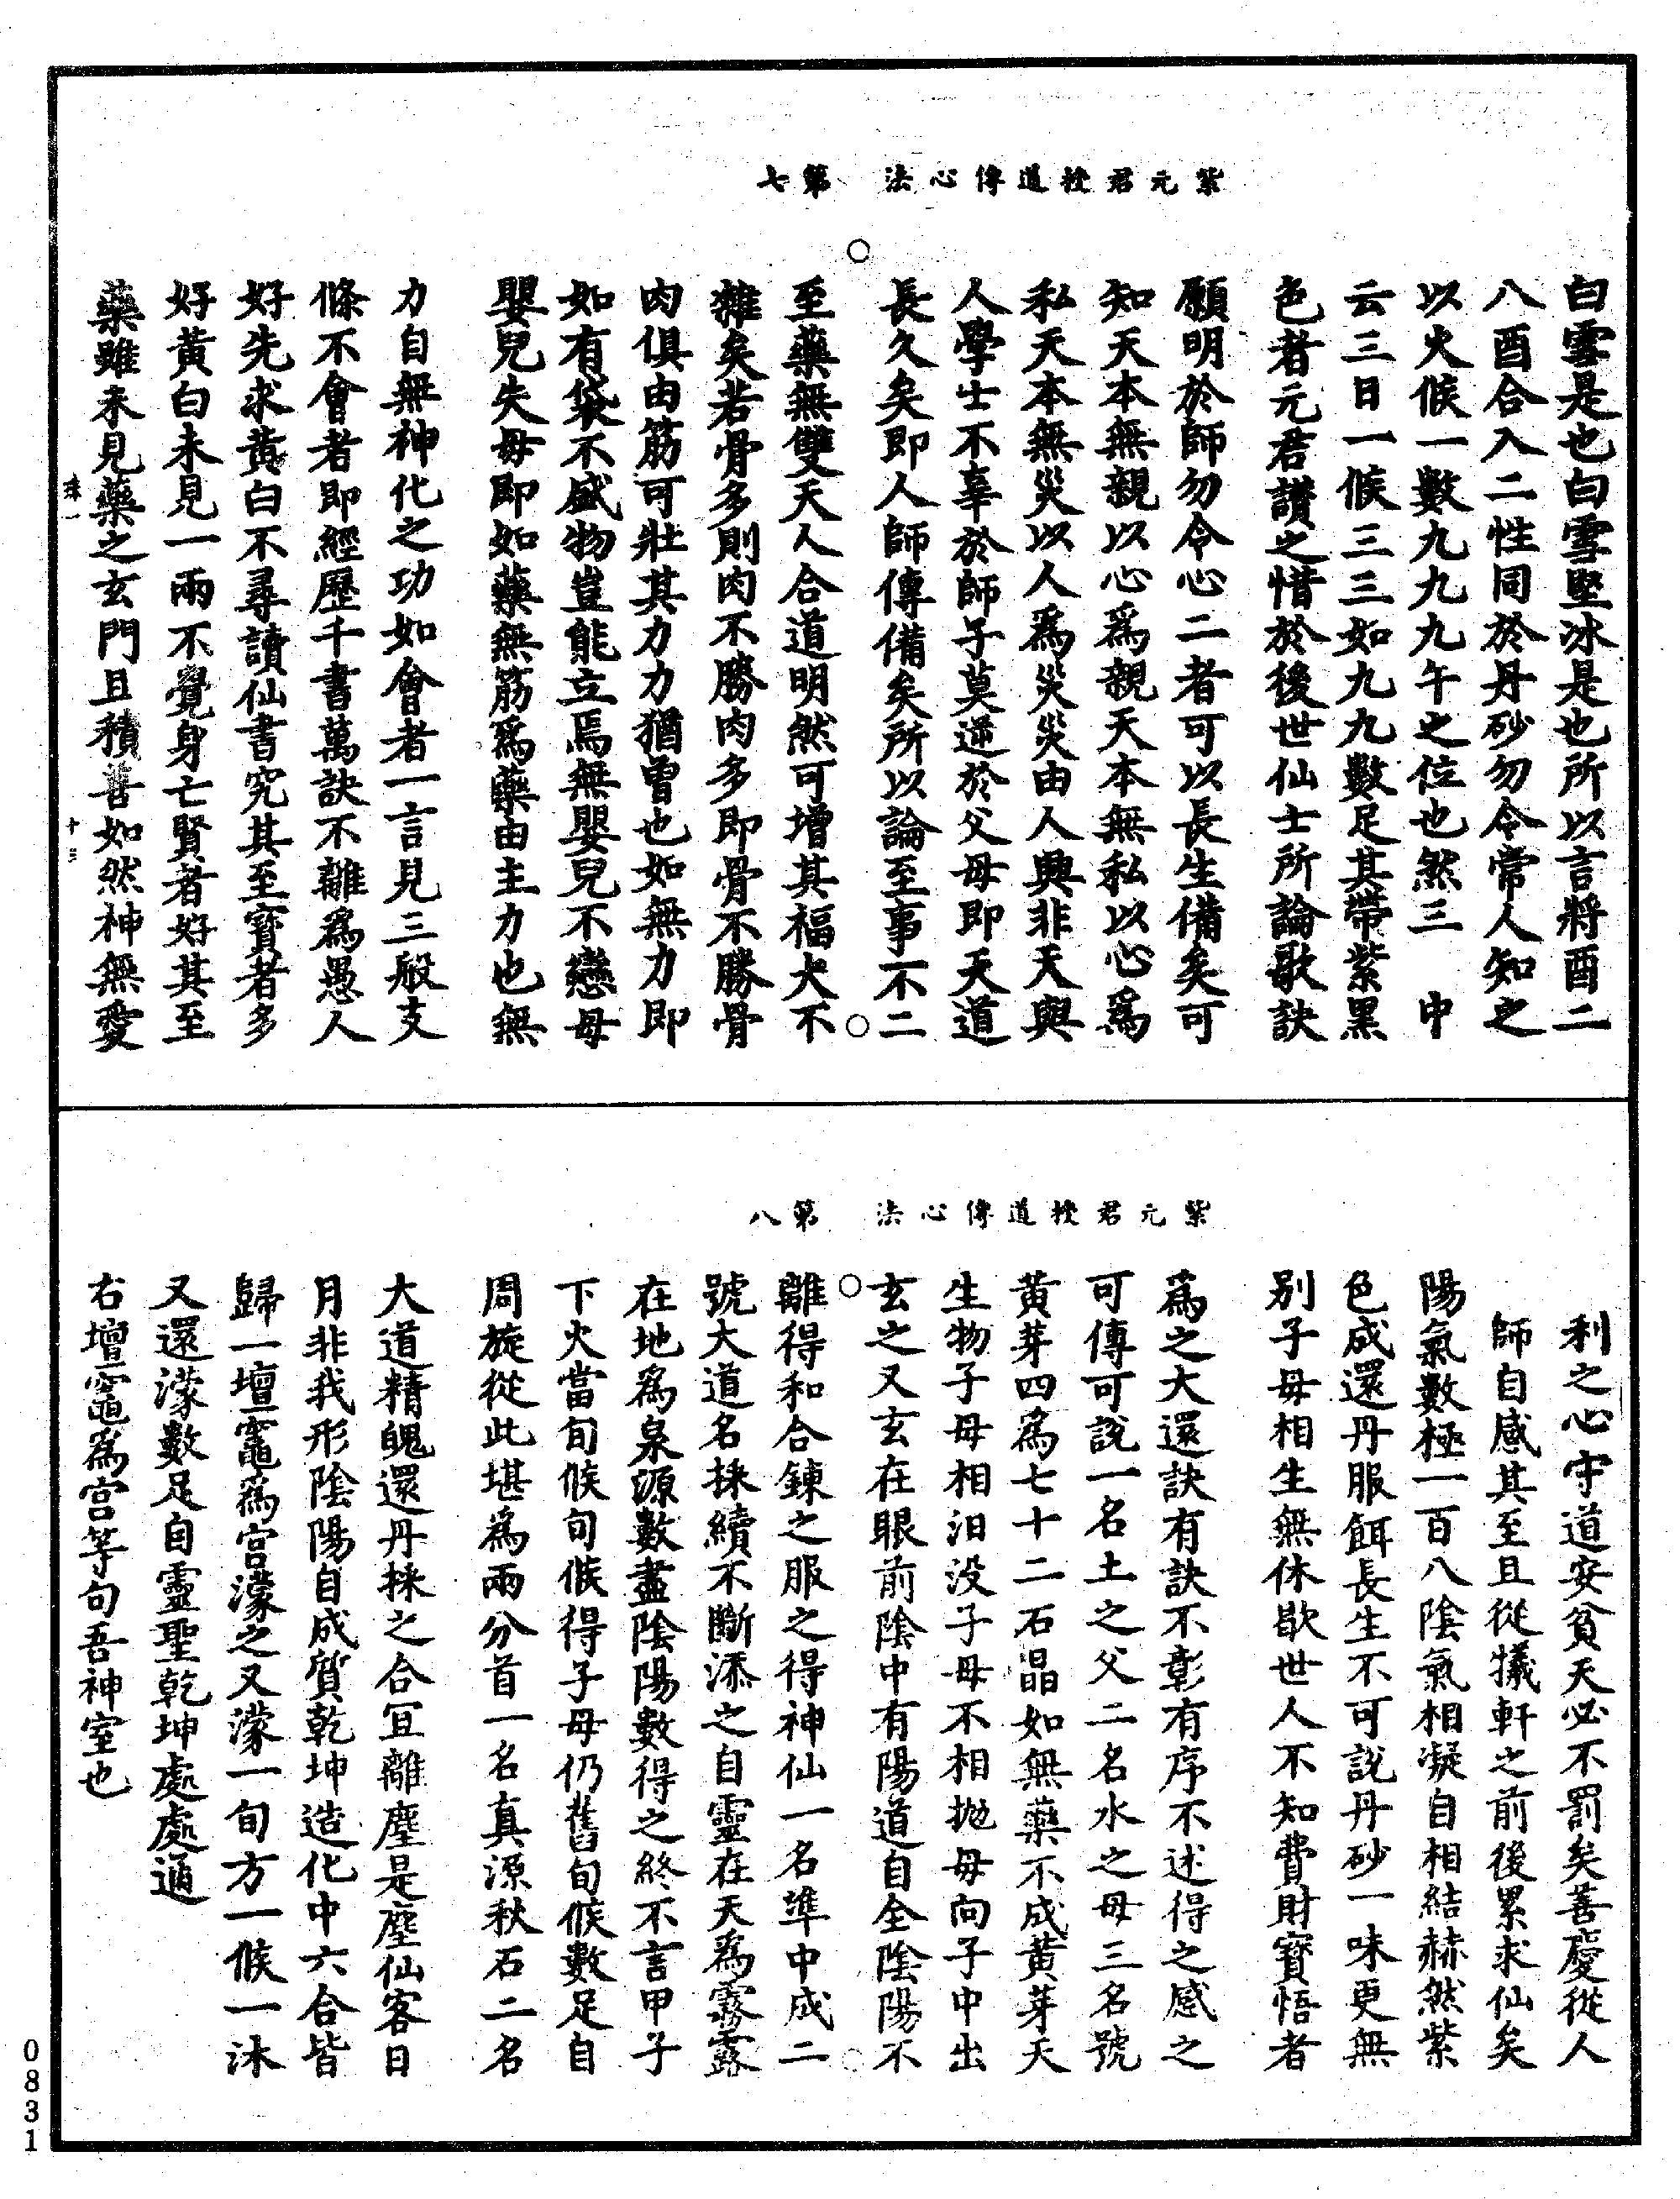 紫元君授道傳心法　第七
白雪是也白雪堅冰是也所以言將酉二
八酉合入二性同於丹砂勿令常人知之
以火候一數九九九午之位也然三　中
云三日一候三三如九九數足其帶紫黑
色者元君讚之惜於後世仙士所論歌訣
願明於師勿令心二者可以長生備矣可
知天本無親以心爲親天本無私以心爲
私天本無災以人爲災災由人興非天與
人學士不辜於師子莫逆於父母即天道
長久矣即人師傳備矣所以論至事不二
至藥無雙天人合道明然可增其福大不
雜矣若骨多則肉不勝肉多即骨不勝骨
肉俱由筋可壯其力力猶曾也如無力即
如有袋不盛物豈能立焉無嬰兒不戀母
嬰兒失母即如藥無筋爲藥由主力也無
力自無神化之功如會者一言見三般支
條不會者即經歷千書萬訣不離爲愚人
好先求黃白不尋讀仙書究其至寶者多
好黃白未見一兩不覺身亡賢者好其至
藥雖未見藥之玄門且積善如然神無愛
珠一　十三
紫元君授道傳心法　第八
利之心守道安貧天必不罰矣善慶從人
師自感其至且從犧軒之前後累求仙矣
陽氣數極一百八陰氣相凝自相結赫然紫
色成還丹服餌長生不可說丹砂一味更無
別子母相生無休歇世人不知費財寶悟者
爲之大還訣有訣不彰有序不述得之感之
可傳可說一名土之父二名水之母三名號
黃芽四爲七十二石晶如無藥不成黃芽天
生物子母相汨没子母不相拋母向子中出
玄之又玄在眼前陰中有陽道自全陰陽不
離得和合鍊之服之得神仙一名準中成二
號大道名採續不斷添之自靈在天爲霧露
在地爲泉源數盡陰陽數得之終不言甲子
下火當旬候旬候得子母仍舊旬候數足自
周旋從此堪爲兩分首一名真源秋石二名
大道精魄還丹採之合宜離塵是塵仙客日
月非我形陰陽自成質乾坤造化中六合皆
歸一壇竈爲宫濛之又濛一旬方一候一沐
又還濛數足自靈聖乾坤處處通
右壇竈爲宫等句吾神室也
0831